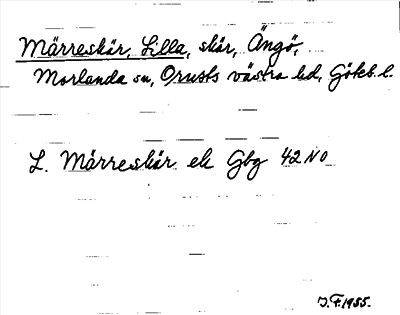 Märreskär, Lilla, skär, Ängö,
Morlanda sn, Orusts västra hd, Göteb. l.
L. Märreskär ek Gbg 42 NO
J.F. 1955.